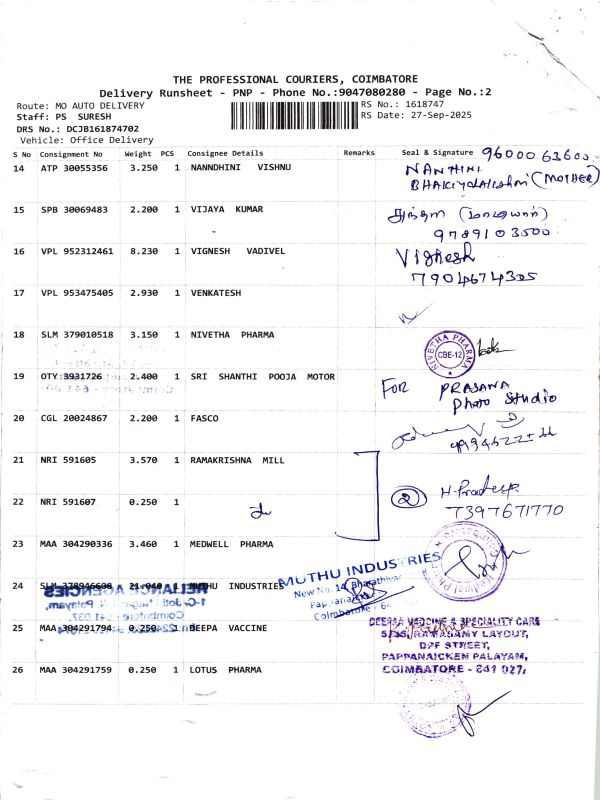 THE PROFESSIONAL COURIERS, COIMBATORE
Delivery Runsheet - PNP - Phone No.:9047080280 - Page No.:2
Route: MO AUTO DELIVERY
RS No.: 1618747
Staff: PS SURESH
RS Date: 27-Sep-2025
DRS No.: DCJB161874702
Vehicle: Office Delivery
S No Consignment No Weight PCS Consignee Details Remarks Seal & Signature 9600063600
14 ATP 30055356 3.250 1 NANNDHINI VISHNU NANTHINI
BHAKIYALAKSHMI (MOTHER)
15 SPB 30069483 2.200 1 VIJAYA KUMAR
9789103500
16 VPL 952312461 8.230 1 VIGNESH VADIVEL Vignesh
7904674305
17 VPL 953475405 2.930 1 VENKATESH
18 SLM 379010518 3.150 1 NIVETHA PHARMA NIVETHA PHARMA CBE-12
19 OTY 3931726 2.400 1 SRI SHANTHI POOJA MOTOR FOR PRASANA
Photo Studio
20 CGL 20024867 2.200 1 FASCO
21 NRI 591605 3.570 1 RAMAKRISHNA MILL
22 NRI 591607 0.250 1 2 H. Pradeep
7397671770
23 MAA 304290336 3.460 1 MEDWELL PHARMA
24 SLM 378946608 21.040 1 MUTHU INDUSTRIES MUTHU INDUSTRIES
New No. 14, Bharathiyar
Coimbatore - 64
RELIANCE AGENCIES
25 MAA 304291794 0.250 1 DEEPA VACCINE DEEPAA VACCINE & SPECIALITY CARE
RAMASAMY LAYOUT,
DPF STREET,
PAPPANAICKEN PALAYAM,
COIMBATORE - 641 027.
26 MAA 304291759 0.250 1 LOTUS PHARMA